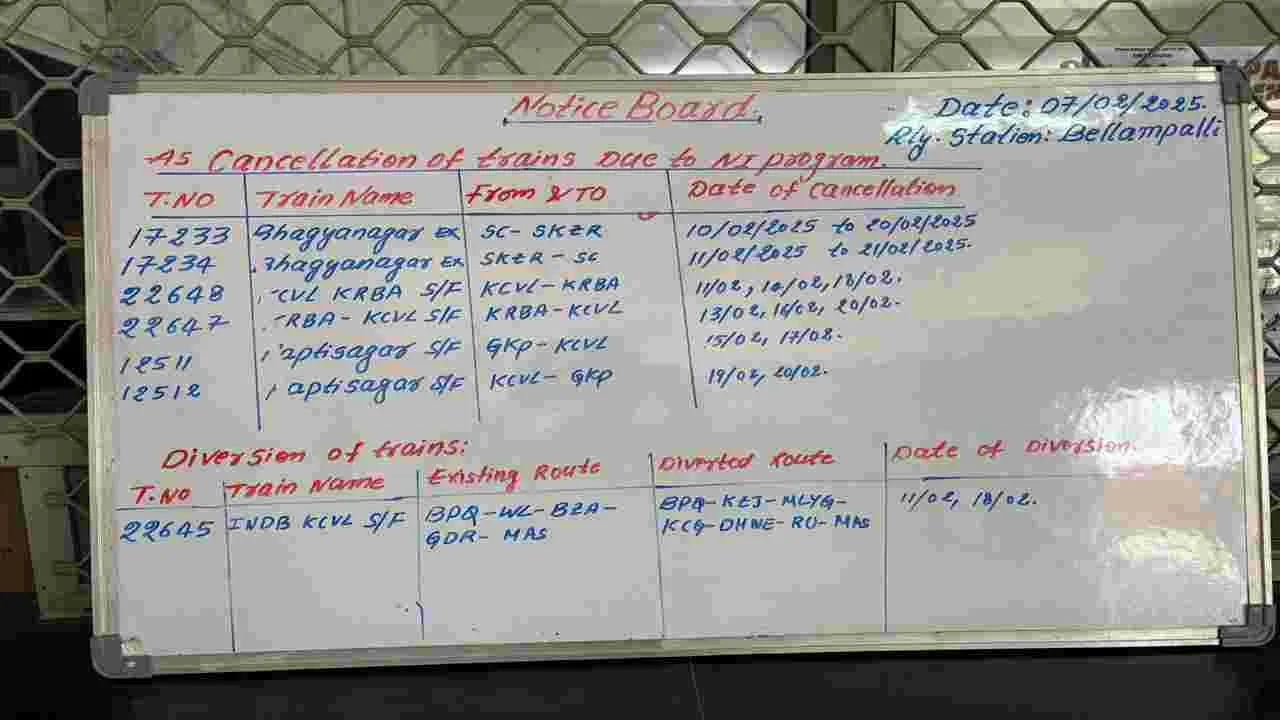 Notice Board.
Date: 07/02/2025.
Rly. Station: Bellampalli
AS Cancellation of trains Due to NI program.
T.NO Train Name From & TO Date of Cancellation
17233 Bhagyanagar Ex SC- SKZR 10/02/2025 to 20/02/2025
17234 Bhagyanagar Ex SKZR - SC 11/02/2025 to 21/02/2025.
22648 CVL KRBA S/F KCVL-KRBA 11/02, 18/02.
22647 RBA- KCVL S/F KRBA-KCVL 13/02, 20/02.
12511 aptisagar S/F GKP- KCVL 15/02, 17/02.
12512 aptisagar S/F KCVL- GKP 19/02, 20/02.
Diversion of trains:
T.NO Train Name Existing Route Diverted Route Date of Diversion.
22645 INDB KCVL S/F BPQ-WL-BZA- BPQ-KZJ-MLYG- 11/02, 18/02.
GDR- MAS KCG-DHNE-RU-MAS